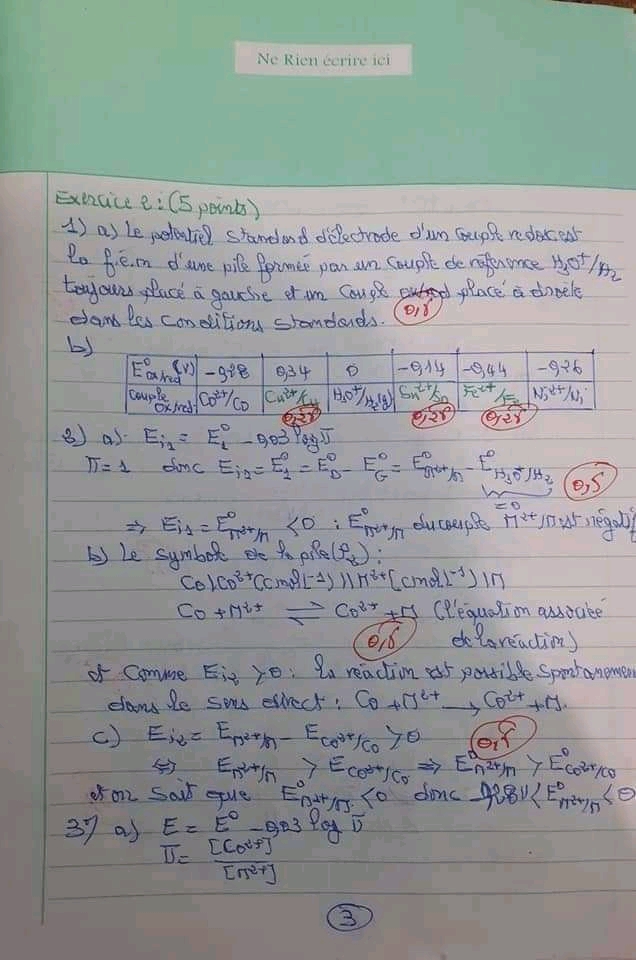 Ne Rien écrire ici
Exercice 2 : (5 points)
1) a) Le potentiel standard d'électrode d'un couple redox est
la f.é.m d'une pile formée par un couple de référence H₃O⁺/H₂
toujours placé à gauche et un couple placé à droite
dans les conditions standards. 0,5
b)
E⁰oxred (V) -0,28 0,34 0 -0,14 -0,44 -0,26
Couple oxred Co²⁺/Co Cu²⁺/Cu H₃O⁺/H₂(g) Sn²⁺/Sn Fe²⁺/Fe Ni²⁺/Ni
0,25 0,25 0,25
2) a) Ei₁ = E⁰₁ - 0,03 log Π
Π = 1 donc Ei₁ = E⁰₁ = E⁰D - E⁰G = E⁰M²⁺/M - E⁰H₃O⁺/H₂
= 0 0,5
⇒ Ei₁ = E⁰M²⁺/M < 0 : E⁰M²⁺/M du couple M²⁺/M est négatif
b) Le symbole de la pile (P₂) :
Co | Co²⁺ (Cmol.L⁻¹) || M²⁺ (Cmol.L⁻¹) | M
Co + M²⁺ ⇌ Co²⁺ + M (l'équation associée
0,5 de la réaction)
et comme Ei₂ > 0 : la réaction est possible spontanémen
dans le sens direct : Co + M²⁺ → Co²⁺ + M.
c) Ei₂ = EM²⁺/M - ECo²⁺/Co > 0 0,5
⇔ EM²⁺/M > ECo²⁺/Co ⇒ E⁰M²⁺/M > E⁰Co²⁺/Co
et on sait que E⁰M²⁺/M < 0 donc -0,28V < E⁰M²⁺/M < 0
3°/ a) E = E⁰ - 0,03 log Π
Π = [Co²⁺]
[M²⁺]
3